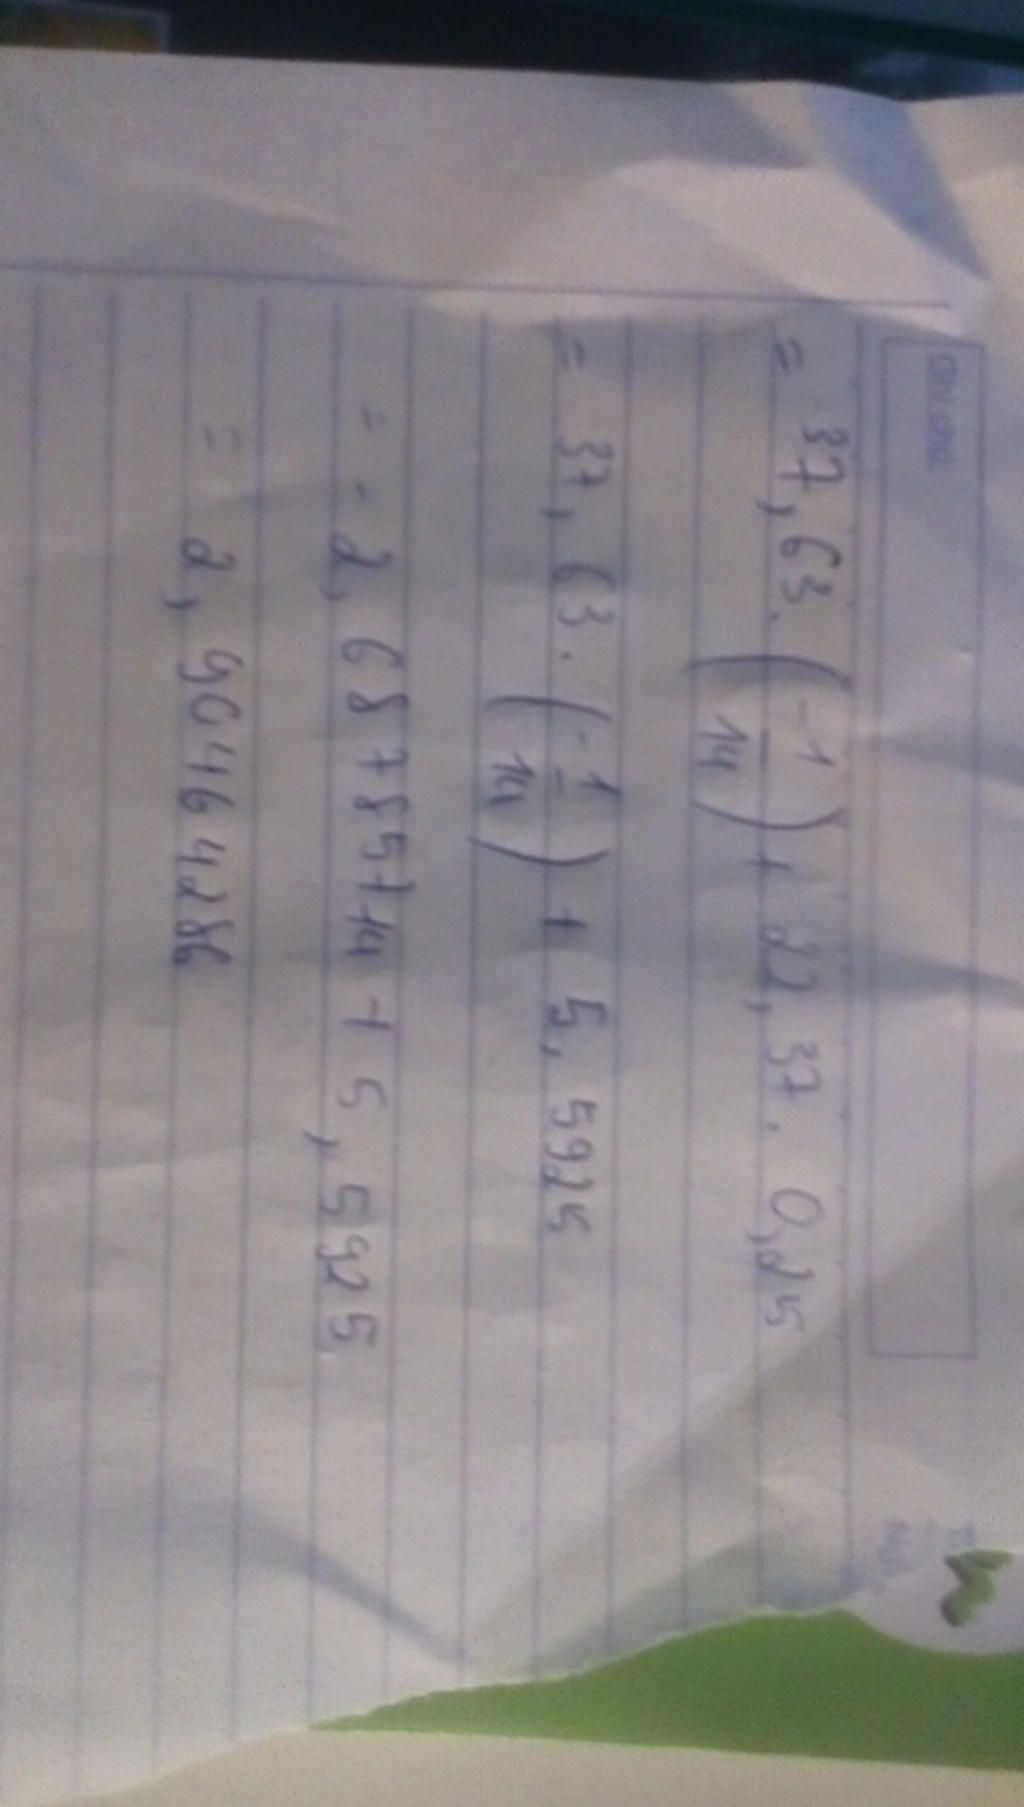 = 37,63.(-1/14) + 22,37. 0,25
= 37,63.(-1/14) + 5,5925
= -2,68785714 + 5,5925
= 2,904164286